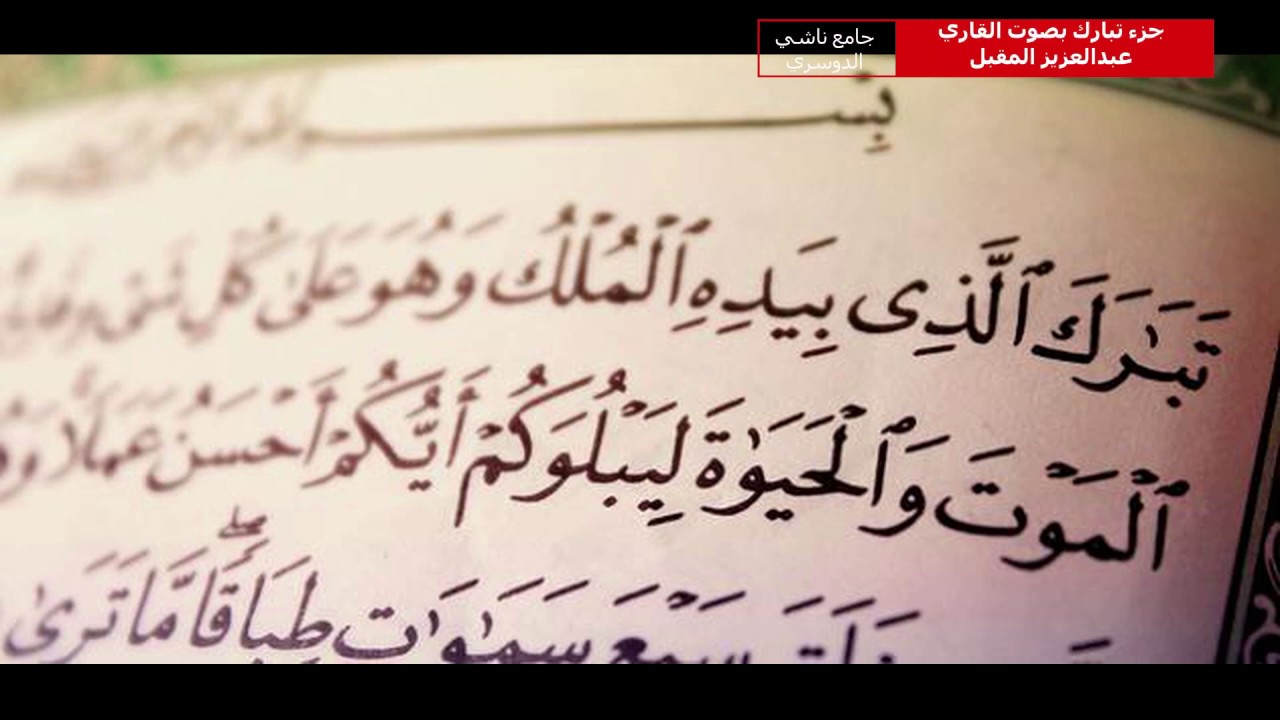 جزء تبارك بصوت القاري
عبدالعزيز المقبل
جامع ناشي
الدوسري
بِسْـــــــــمِ
تَبَٰرَكَ ٱلَّذِى بِيَدِهِ ٱلْمُلْكُ وَهُوَ عَلَىٰ كُلِّ شَىْءٍ
ٱلْمَوْتَ وَٱلْحَيَوٰةَ لِيَبْلُوَكُمْ أَيُّكُمْ أَحْسَنُ عَمَلًا
خَلَقَ سَبْعَ سَمَٰوَٰتٍ طِبَاقًا ۖ مَّا تَرَىٰ